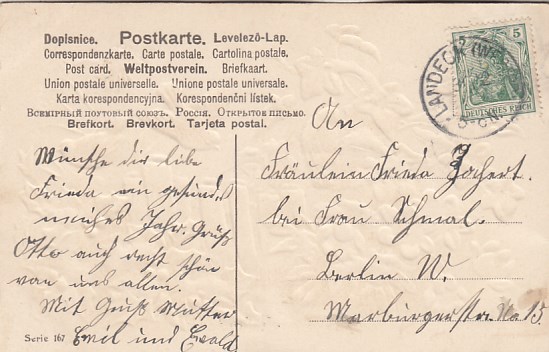 Dopisnice. Postkarte. Levelező-Lap.
Correspondenzkarte. Carte postale. Cartolina postale.
Post card. Weltpostverein. Briefkaart.
Union postale universelle. Unione postale universale.
Karta korespondencyjna. Korespondenční lístek.
Всемірный почтовый союзъ. Россія. Открытое письмо.
Brefkort. Brevkort. Tarjeta postal.
5
DEUTSCHES REICH
LANDECK
Wünsche dir liebe
Frieda ein gesundes
neuches Jahr. Grüß
Otto auch recht schön
von uns allen.
Mit Gruß Mutter
Emil und Ewald
Serie 167
An
Fräulein Frieda
bei Frau Schmal.
Berlin W.
Marburgerstr. No 15